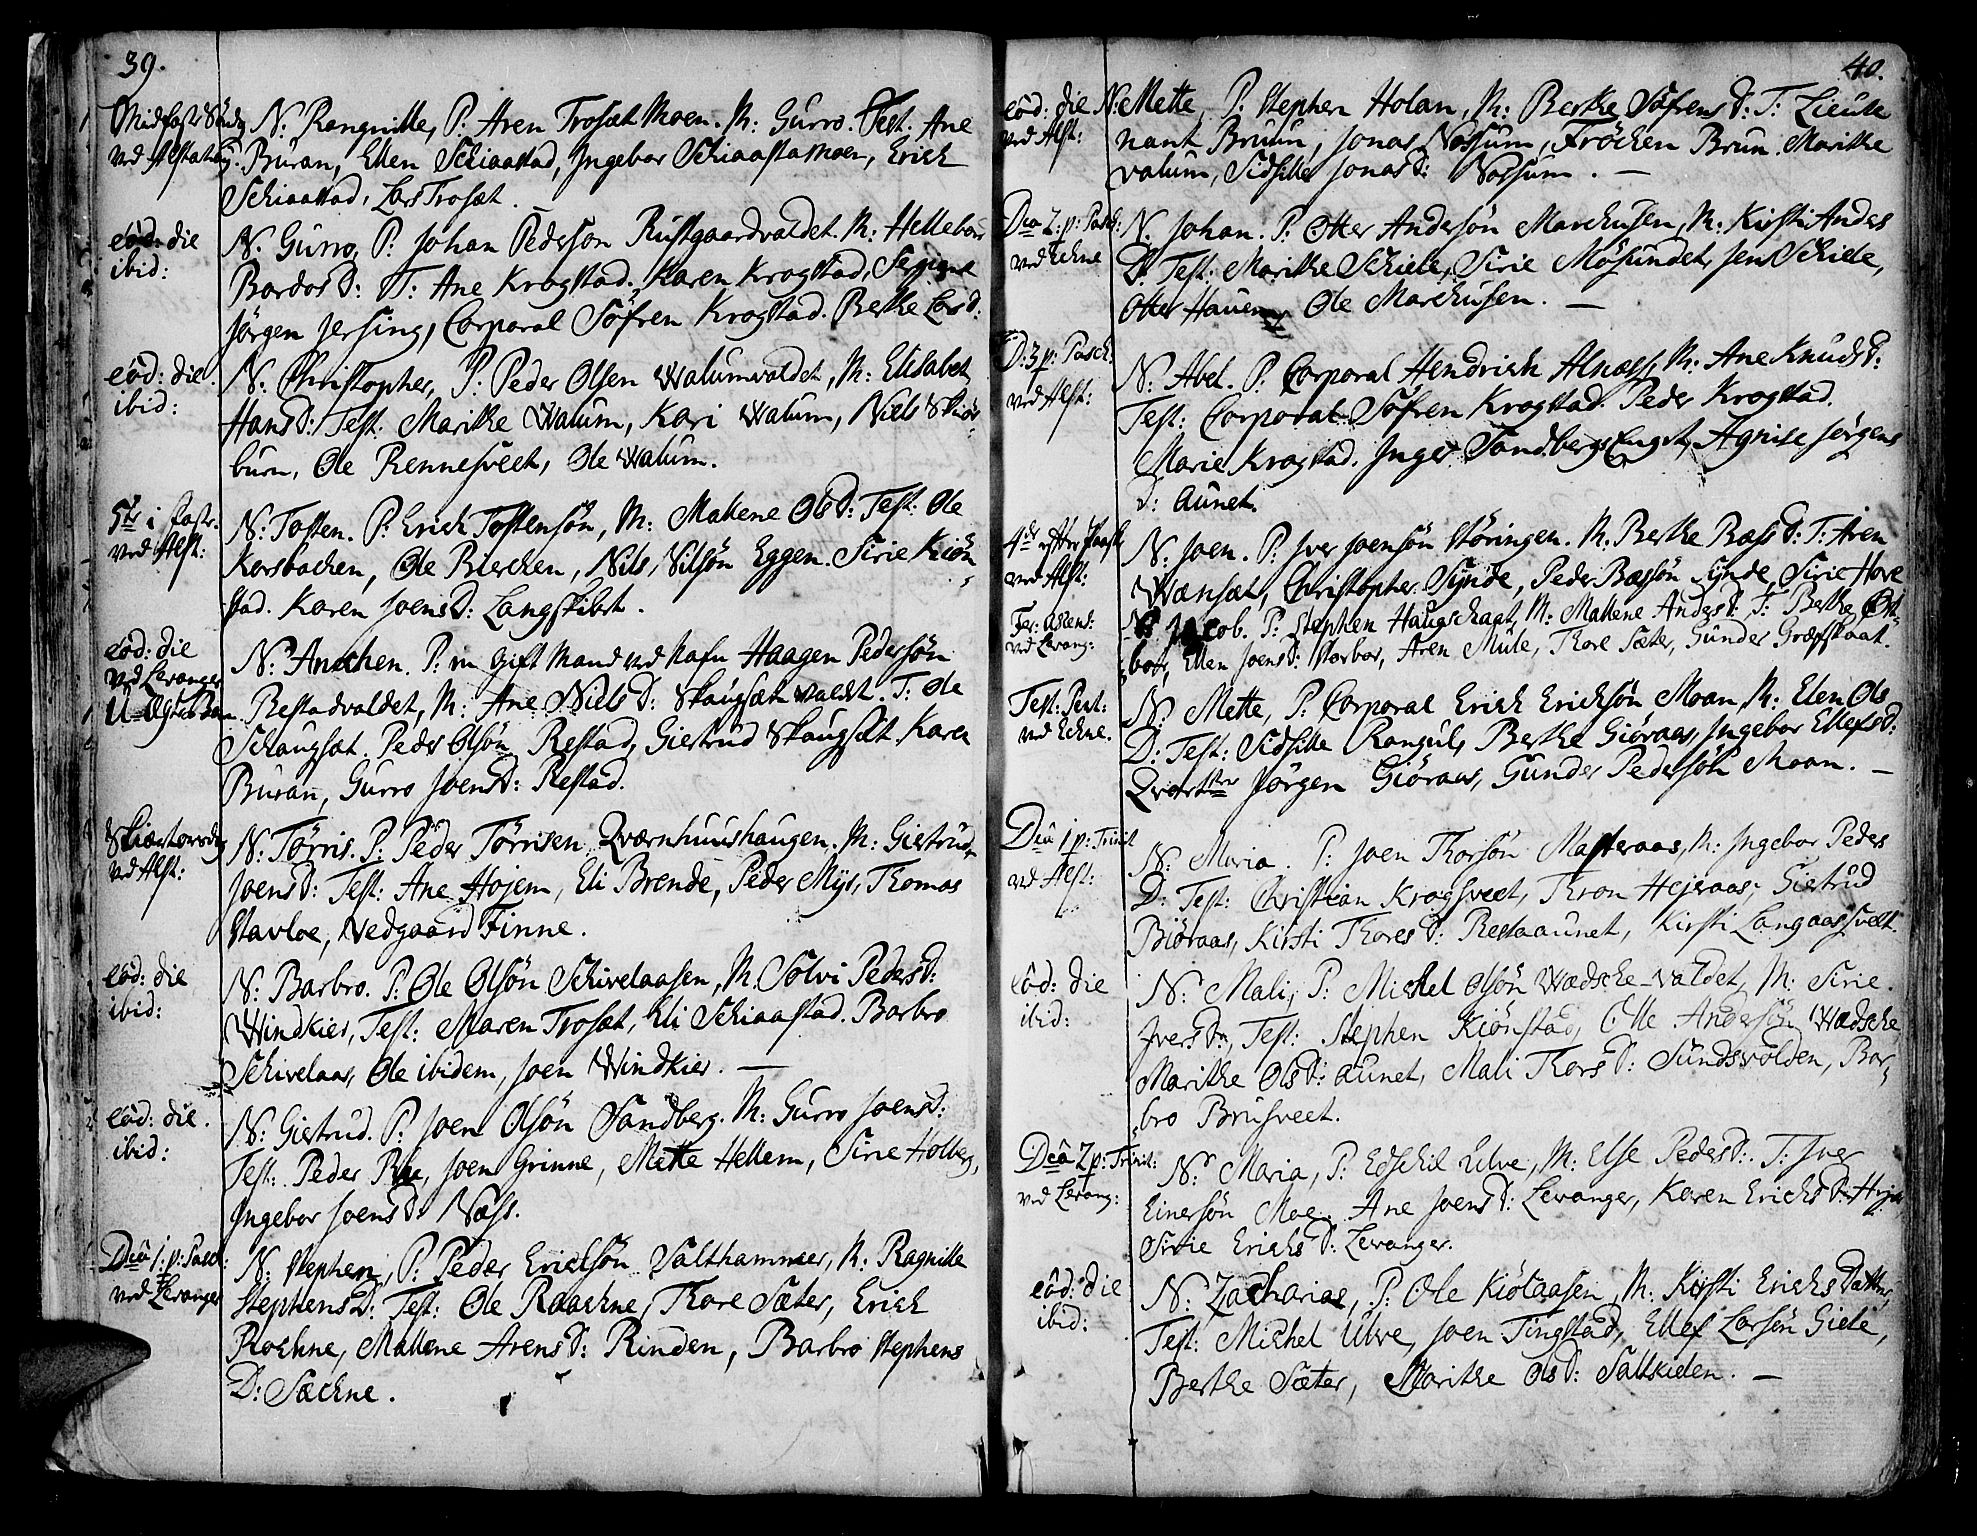 39.
Midfaste Sönd:
ved Alstahoug.
N: Rangnille, P: Aren Trosæt Moen. M: Gurro. Test: Ane
Buran, Ellen Schiaastad, Ingebor Schiaastamoen, Erich
Schiaastad, Lars Trosæt.
eôd: die
ibid:
N: Gurro, P: Johan Pederson Rustgaardvaldet. M: Hellebor
Bardos D: T: Ane Krogstad. Karen Krogstad, Sergiant
Jörgen Jersing, Corporal Söfren Krogstad. Berthe Lars D:
eôd: die.
ibid:
N: Christopher, P: Peder Olsen Walumvaldet, M: Elisabet
Hans D: Test: Marithe Walum, Kari Walum, Niels Skiör-
burn, Ole Rennesveet, Ole Walum.
5te i Fast:
ved Alst:
N: Tosten. P: Erich Tostensön, M: Mallene Ols D: Test: Ole
Korsbachen, Ole Biercken, Nils Nilsön Eggen. Sirie Kiön-
stad. Karen Joens D: Langskibt.
eod: die
ved Levanger
U-Ægte Barn
N: Anchen. P: en gift Mand ved Nafn Haagen Pedersön
Restadvaldet, M: Ane Niels D: Skaugsæt valdt. T: Ole
Schaugsæt. Peder Olsön Restad, Giertrud Skaugset. Karen
Buran, Gurro Joens D: Restad.
Skiærtorsdag
ved Alst:
N: Törris. P: Peder Törrisen Qværnhuushaugen. M: Giertrud
Joens D: Test: Ane Hojem, Eli Brende, Peder Mÿr, Thomas
Stavloe, Vedgaard Finne.
eôd: die
ibid:
N: Barbro. P: Ole Olsön Schivelaasen, M. Solvi Peders D:
Windkier, Test: Maren Trosæt, Eli Schiaastad. Barbro
Schivelaas, Ole ibidem, Joen Windkier.
eôd: die.
ibid:
N: Giertrud. P: Joen Olsön Sandberg. M: Gurro Joens D:
Test: Peder Bye, Joen Grinne, Mette Hellem, Sirie Holberg,
Ingebor Joens D: Næss.
Dca 1: p: Pasch:
ved Levanger
N: Stephen, P: Peder Erichsön Salthammer, M: Ragnille
Stephens D: Test: Ole Roschne, Thore Sæter, Erich
Roschne, Mallene Arens D: Rinden, Barbro Stephens
D: Sæchne.
40.
eôd: die
ved Alst:
N: Mette, P: Stephen Holan, M: Berthe Söfrens D: T: Lieute
nant Bruun, Jonas Nossum, Fröchen Brun. Marithe
valum, Sidsille Jonas D: Nossum.
Dca 2: p: Pasch:
ved Echne
N: Johan. P: Otter Andersön Marchusen, M: Kirsti Anders
D: Test: Marithe Schiele, Sirie Mösundet, Jens Schiele,
Otter Hauen, Ole Marchusen.
D: 3 p: Pasch.
ved Alst:
N: Abel. P: Corporal Hendrich Alnæss, M: Ane Knuds D:
Test: Corporal Söfren Krogstad. Peder Krogstad.
Marie Krogstad. Inger Sandbergs Enget, Agnise Jörgens
D: Aunet.
4de p: Paasche
ved Alst:
N: Joen. P: Iver Joensön Störingen. M: Berthe Baas D: T: Aren
Wænsæt, Christopher Synde, Peder Bæssön Synde, Sirie Hove
Fer: Ascens:
ved Levang:
N: Jacob. P: Stephen Haugskaat, M: Mallene Anders D: T: Berthe Ost-
bor, Ellen Joens D: Storbor, Aren Mule, Thore Sæter, Gunder Græfskaat.
Fest: Pent:
ved Echne.
N: Mette, P: Corporal Erich Erichsön Moan, M: Elen Ols
D: Test: Sidsille Rangul, Berthe Giöraas, Ingebor Ellefs D:
Qvarter Jörgen Giöraas, Gunder Pedersön Moan.
Dca 1 p: Trinit
ved Alst:
N: Maria. P: Joen Thorsön Masteraas, M: Ingebor Peders
D: Test: Christian Krogsveet, Thron Hejraas, Giertrud
Biöraas, Kirsti Thores D: Restaaunet, Kirsti Langaassveet.
eôd: die
ibid:
N: Mali, P: Michel Olsön Wædsche-valdet, M: Sirie
Ivers D:, Test: Stephen Kiönstad, Olle Andersön Wædsche,
Marithe Ols D: Aunet, Mali Thors D: Sundsvolden, Bar-
bro Brusveet.
Dca 2 p: Trinit:
ved Levang:
N: Maria, P: Edschil Ulve, M: Else Peders D: T: Iver
Einersön Moe. Ane Joens D: Levanger, Karen Erichs D: Hojem
Sirie Erichs D: Levanger.
eôd: die
ibid:
N: Zacharias, P: Ole Kiölaasen, M: Kirsti Erichs Datter,
Test: Michel Ulve, Joen Tingstad, Ellef Larsön Giele,
Berthe Sæter, Marithe Ols D: Saltkielen.